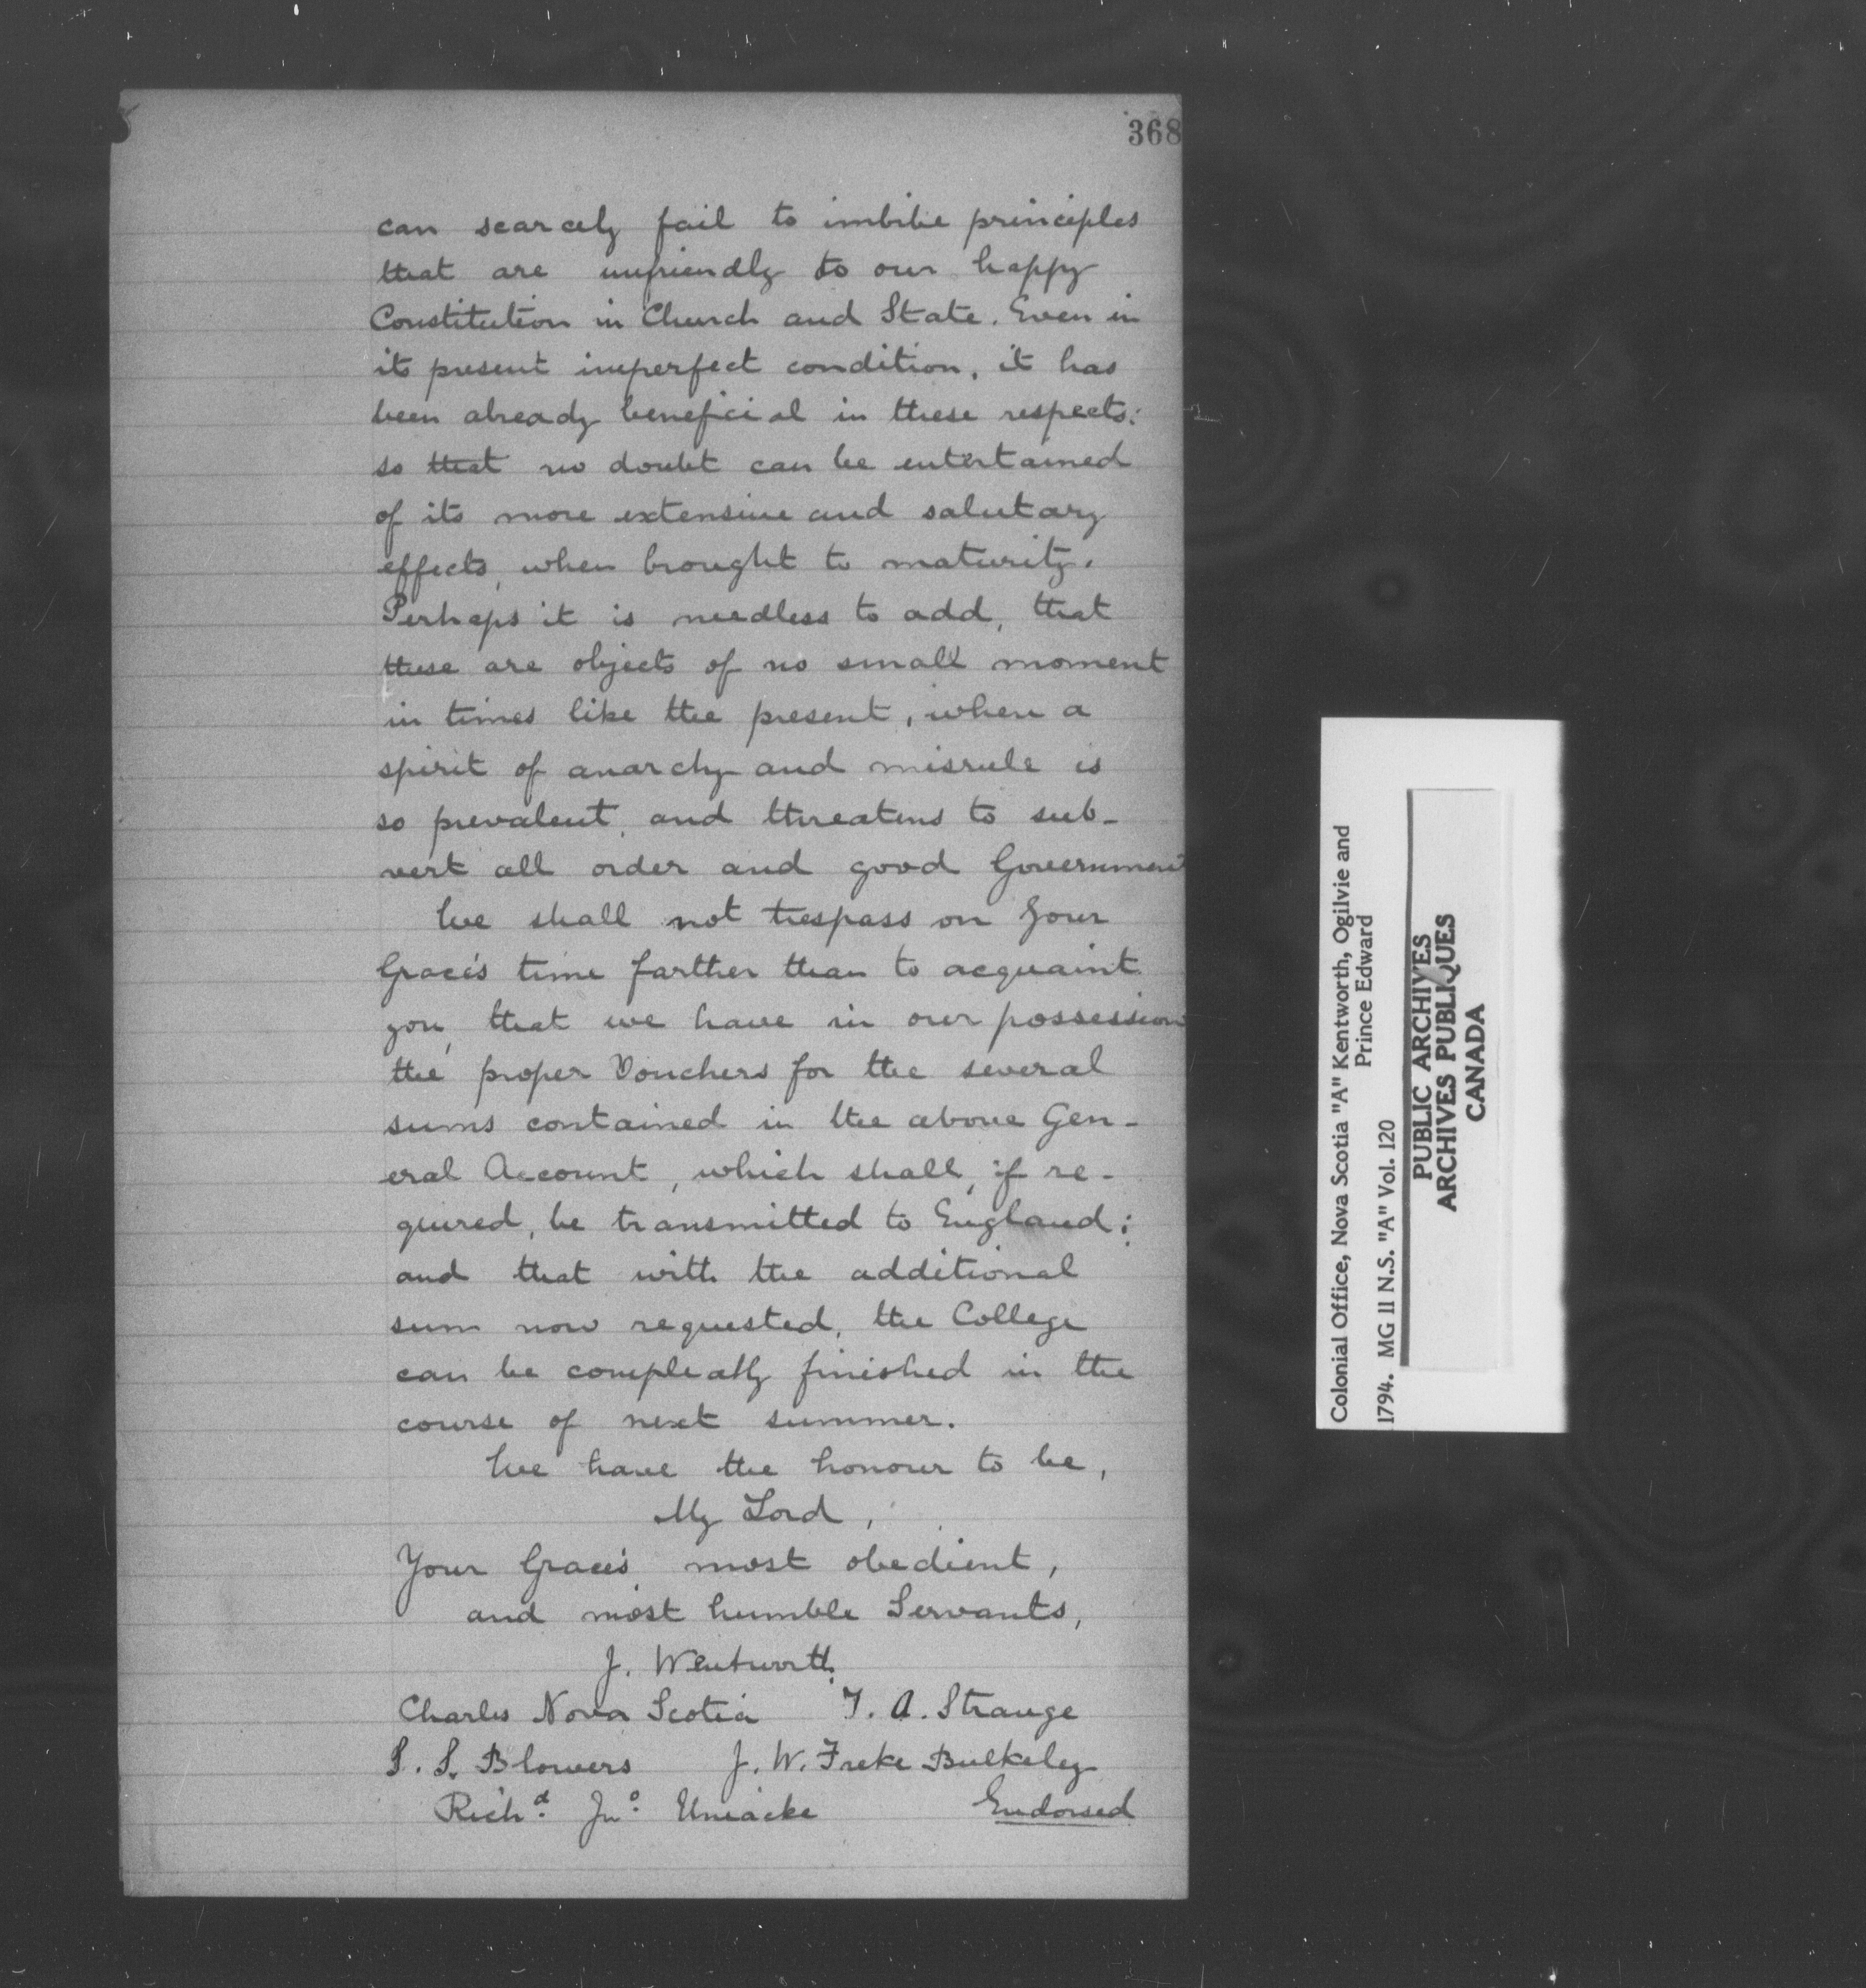 368
can scarcely fail to imbibe principles
that are unfriendly to our happy
Constitution in Church and State. Even in
it present imperfect condition, it has
been already beneficial in these respects:
so that no doubt can be entertained
of its more extensive and salutary
effects, when brought to maturity.
Perhaps it is needless to add, that
these are objects of no small moment
in times like the present, when a
spirit of anarchy and misrule is
so prevalent, and threatens to sub-
vert all order and good Government
We shall not trespass on Your
Grace's time farther than to acquaint
you, that we have in our possession
the proper Vouchers for the several
sums contained in the above Gen-
eral Account, which shall, if re-
quired, be transmitted to England;
and that with the additional
sum now requested, the College
can be compleatly finished in the
course of next summer.
We have the honour to be,
My Lord,
Your Grace's most obedient,
and most humble Servants,
J. Wentworth.
Charles Nova Scotia T. A. Strange
S. S. Blowers J. W. Freke Bulkeley
Richd. Jno. Uniacke Endorsed
Colonial Office, Nova Scotia "A" Kentworth, Ogilvie and
Prince Edward
1794. MG 11 N.S. "A" Vol. 120
PUBLIC ARCHIVES
ARCHIVES PUBLIQUES
CANADA